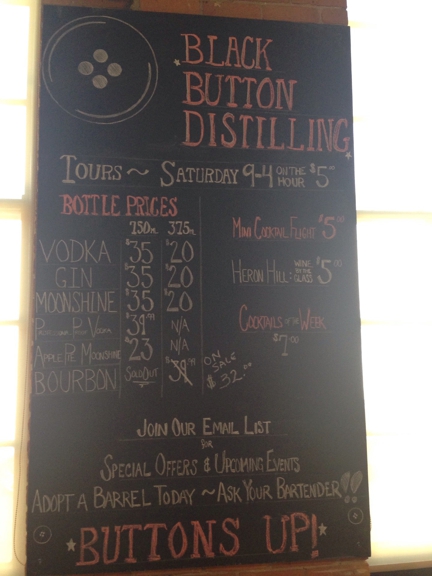 BLACK
BUTTON
DISTILLING
TOURS ~ SATURDAY 9-4 ON THE HOUR $5.00
BOTTLE PRICES
750ML 375ML
VODKA $35 $20
GIN $35 $20
MOONSHINE $35 $20
VODKA $39.99 N/A
APPLE PIE MOONSHINE $23 N/A
BOURBON SOLD OUT $39.99 ON SALE $32.00
MINI COCKTAIL FLIGHT $5.00
HERON HILL: WINE BY THE GLASS $5.00
COCKTAILS OF THE WEEK
$7.00
JOIN OUR EMAIL LIST
FOR
SPECIAL OFFERS & UPCOMING EVENTS
ADOPT A BARREL TODAY ~ ASK YOUR BARTENDER!!
BUTTONS UP!